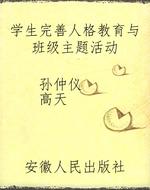 学生完善人格教育与
班级主题活动
孙仲仪
高天
安徽人民出版社